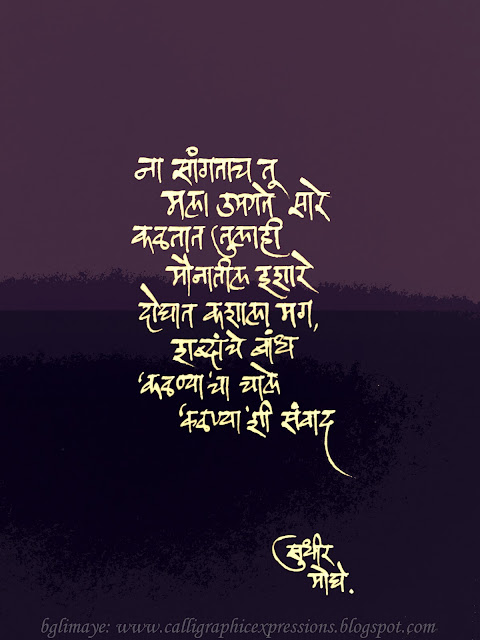 ना सांगताच तू
मला उमगते सारे
कळतात तुलाही
मौनातील इशारे
दोघात कशाला मग,
शब्दांचे बांध
'कळण्या'चा चाले
'कळण्या'शी संवाद
सुधीर
मोघे.
bglimaye: www.calligraphicexpressions.blogspot.com